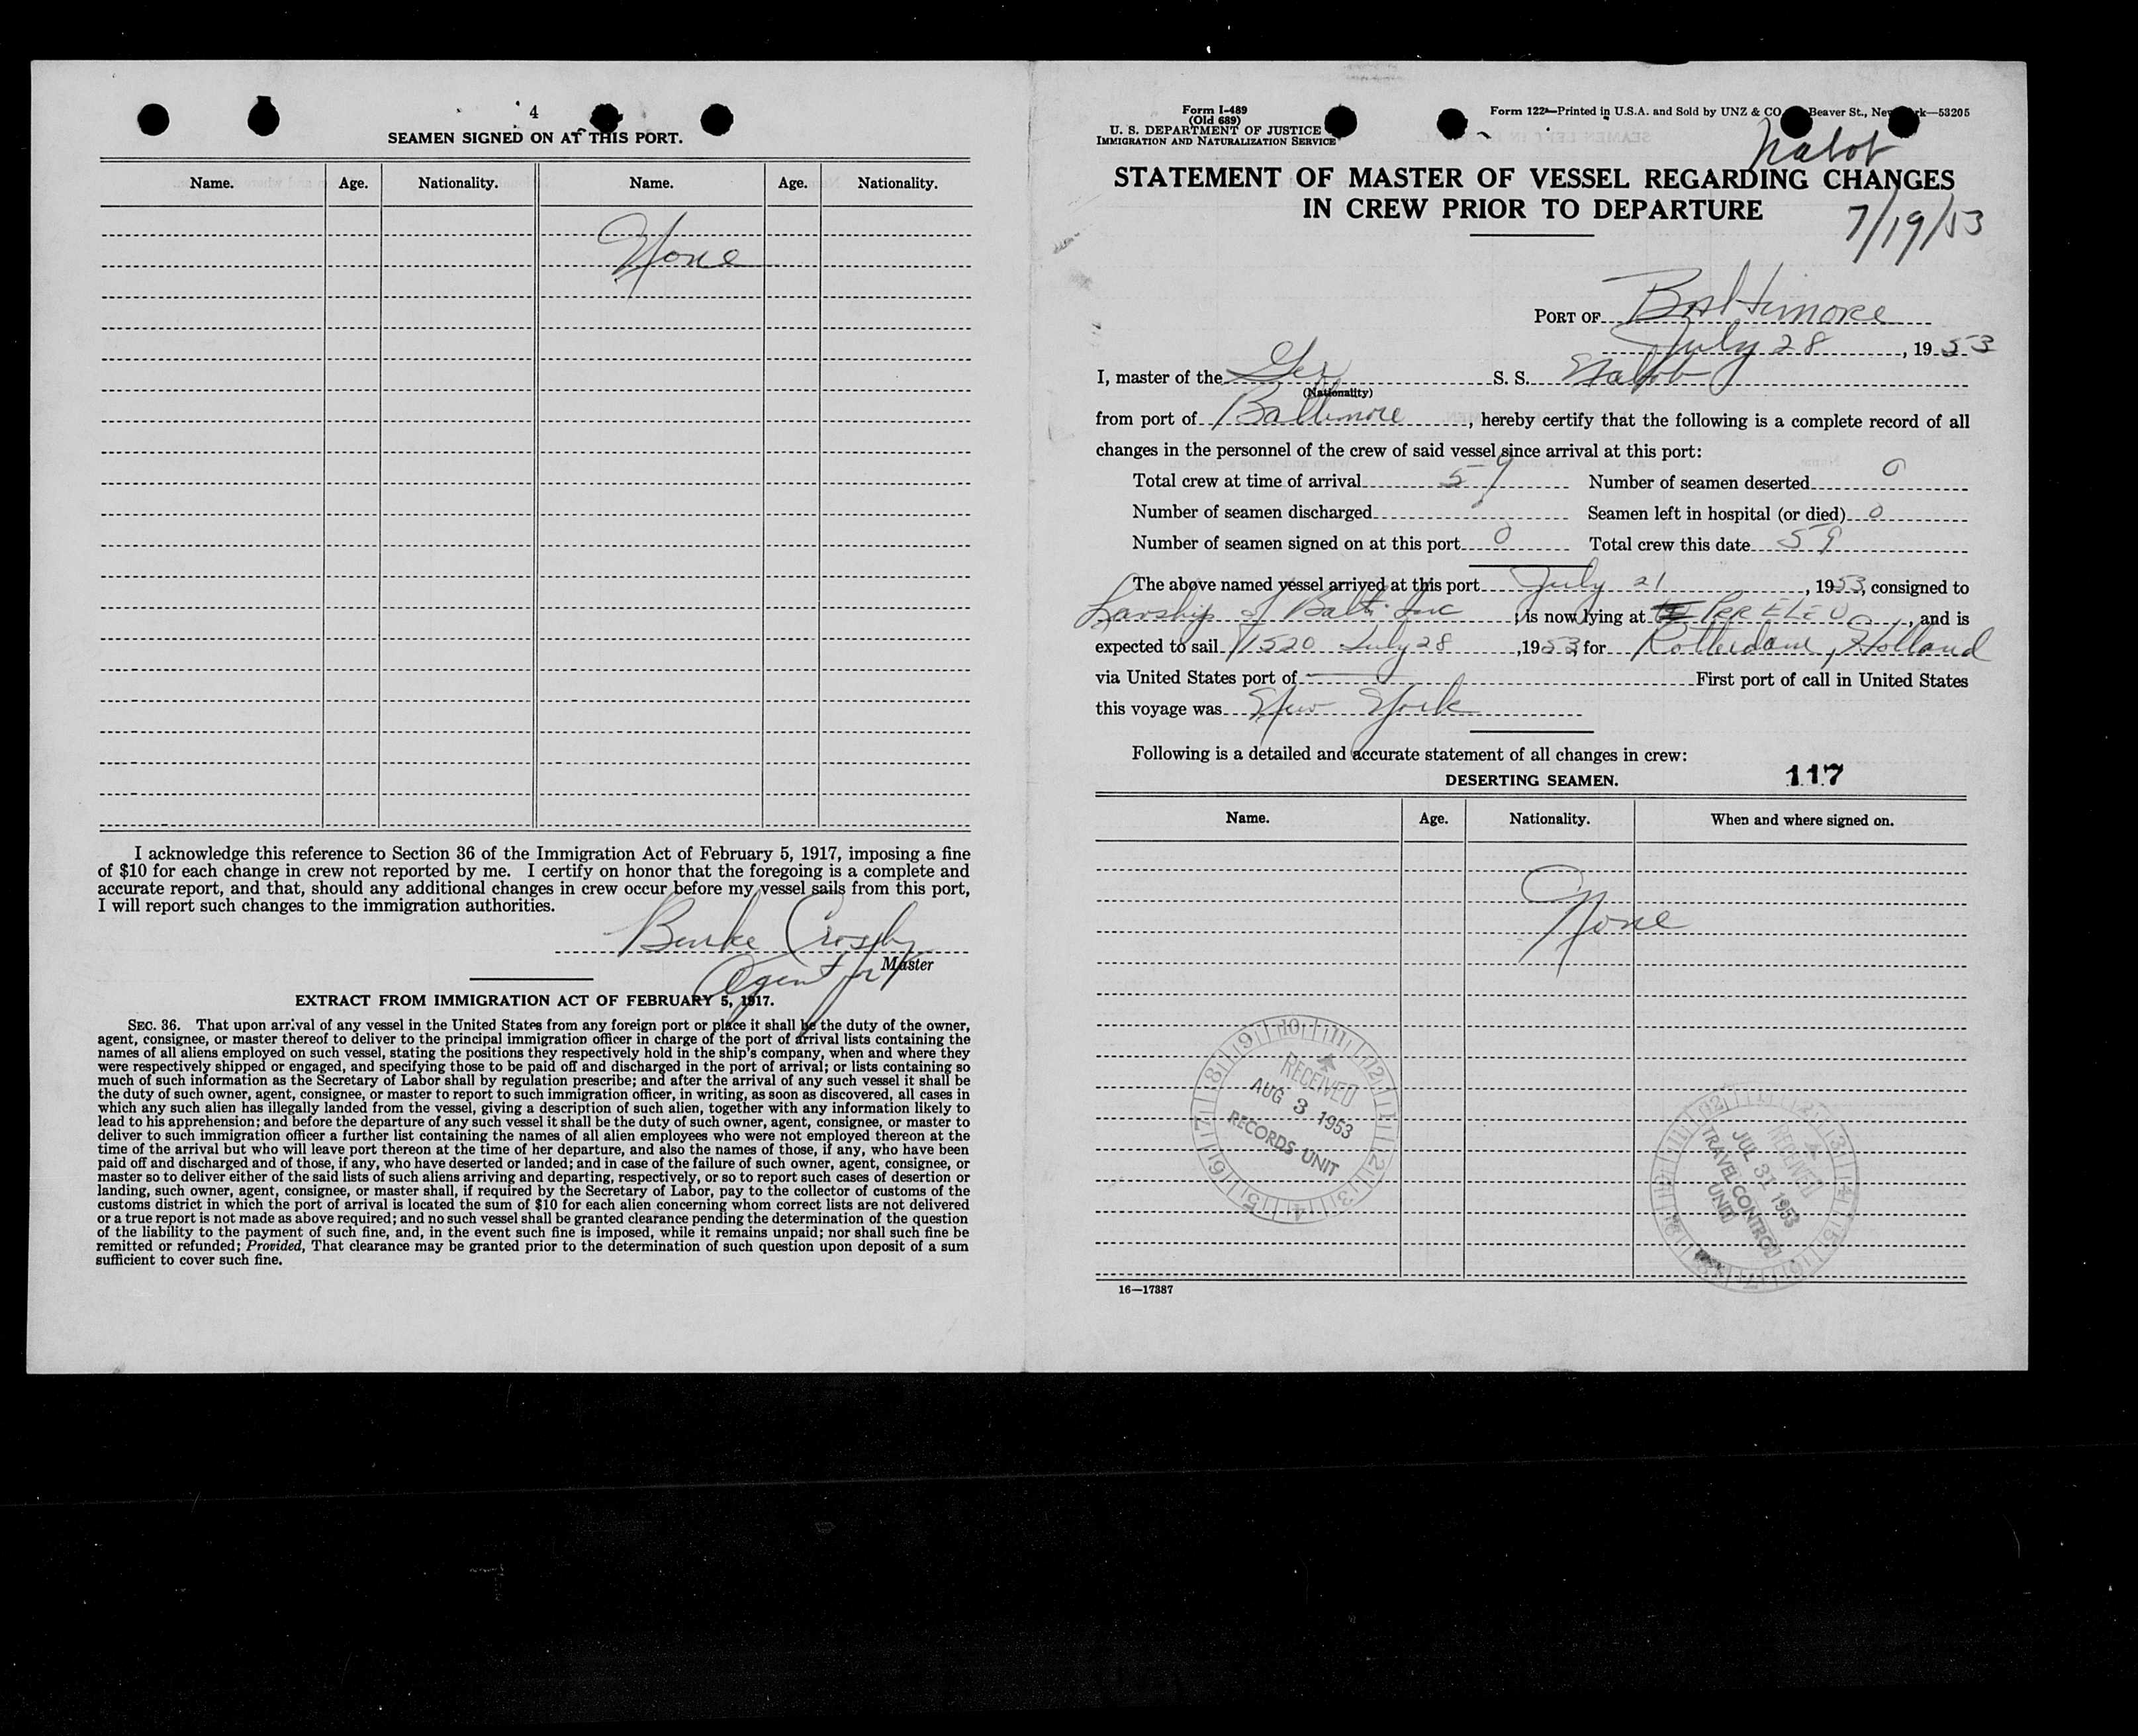 4
SEAMEN SIGNED ON AT THIS PORT.
Name. Age. Nationality. Name. Age. Nationality.
None
I acknowledge this reference to Section 36 of the Immigration Act of February 5, 1917, imposing a fine
of $10 for each change in crew not reported by me. I certify on honor that the foregoing is a complete and
accurate report, and that, should any additional changes in crew occur before my vessel sails from this port,
I will report such changes to the immigration authorities.
Burke Crosby
Master
Agent for
EXTRACT FROM IMMIGRATION ACT OF FEBRUARY 5, 1917.
SEC. 36. That upon arrival of any vessel in the United States from any foreign port or place it shall be the duty of the owner,
agent, consignee, or master thereof to deliver to the principal immigration officer in charge of the port of arrival lists containing the
names of all aliens employed on such vessel, stating the positions they respectively hold in the ship's company, when and where they
were respectively shipped or engaged, and specifying those to be paid off and discharged in the port of arrival; or lists containing so
much of such information as the Secretary of Labor shall by regulation prescribe; and after the arrival of any such vessel it shall be
the duty of such owner, agent, consignee, or master to report to such immigration officer, in writing, as soon as discovered, all cases in
which any such alien has illegally landed from the vessel, giving a description of such alien, together with any information likely to
lead to his apprehension; and before the departure of any such vessel it shall be the duty of such owner, agent, consignee, or master to
deliver to such immigration officer a further list containing the names of all alien employees who were not employed thereon at the
time of the arrival but who will leave port thereon at the time of her departure, and also the names of those, if any, who have been
paid off and discharged and of those, if any, who have deserted or landed; and in case of the failure of such owner, agent, consignee, or
master so to deliver either of the said lists of such aliens arriving and departing, respectively, or so to report such cases of desertion or
landing, such owner, agent, consignee, or master shall, if required by the Secretary of Labor, pay to the collector of customs of the
customs district in which the port of arrival is located the sum of $10 for each alien concerning whom correct lists are not delivered
or a true report is not made as above required; and no such vessel shall be granted clearance pending the determination of the question
of the liability to the payment of such fine, and, in the event such fine is imposed, while it remains unpaid; nor shall such fine be
remitted or refunded; Provided, That clearance may be granted prior to the determination of such question upon deposit of a sum
sufficient to cover such fine.
Form I-489
(Old 689)
U. S. DEPARTMENT OF JUSTICE
IMMIGRATION AND NATURALIZATION SERVICE
Form 122—Printed in U.S.A. and Sold by UNZ & CO. Beaver St., New York—53205
Nabob
STATEMENT OF MASTER OF VESSEL REGARDING CHANGES
IN CREW PRIOR TO DEPARTURE
7/19/53
PORT OF Baltimore
July 28, 1953
I, master of the Ger S. S. Nabob
(Nationality)
from port of Baltimore, hereby certify that the following is a complete record of all
changes in the personnel of the crew of said vessel since arrival at this port:
Total crew at time of arrival 59 Number of seamen deserted 0
Number of seamen discharged Seamen left in hospital (or died) 0
Number of seamen signed on at this port 0 Total crew this date 59
The above named vessel arrived at this port July 21, 1953, consigned to
of Balt. Inc, is now lying at PRR ELEV, and is
expected to sail 1520 July 28, 1953, for Rotterdam, Holland
via United States port of — First port of call in United States
this voyage was New York
Following is a detailed and accurate statement of all changes in crew:
DESERTING SEAMEN. 117
Name. Age. Nationality. When and where signed on.
None
RECEIVED
AUG 3 1953
RECORDS UNIT
RECEIVED
JUL 31 1953
TRAVEL CONTROL
UNIT
16—17387